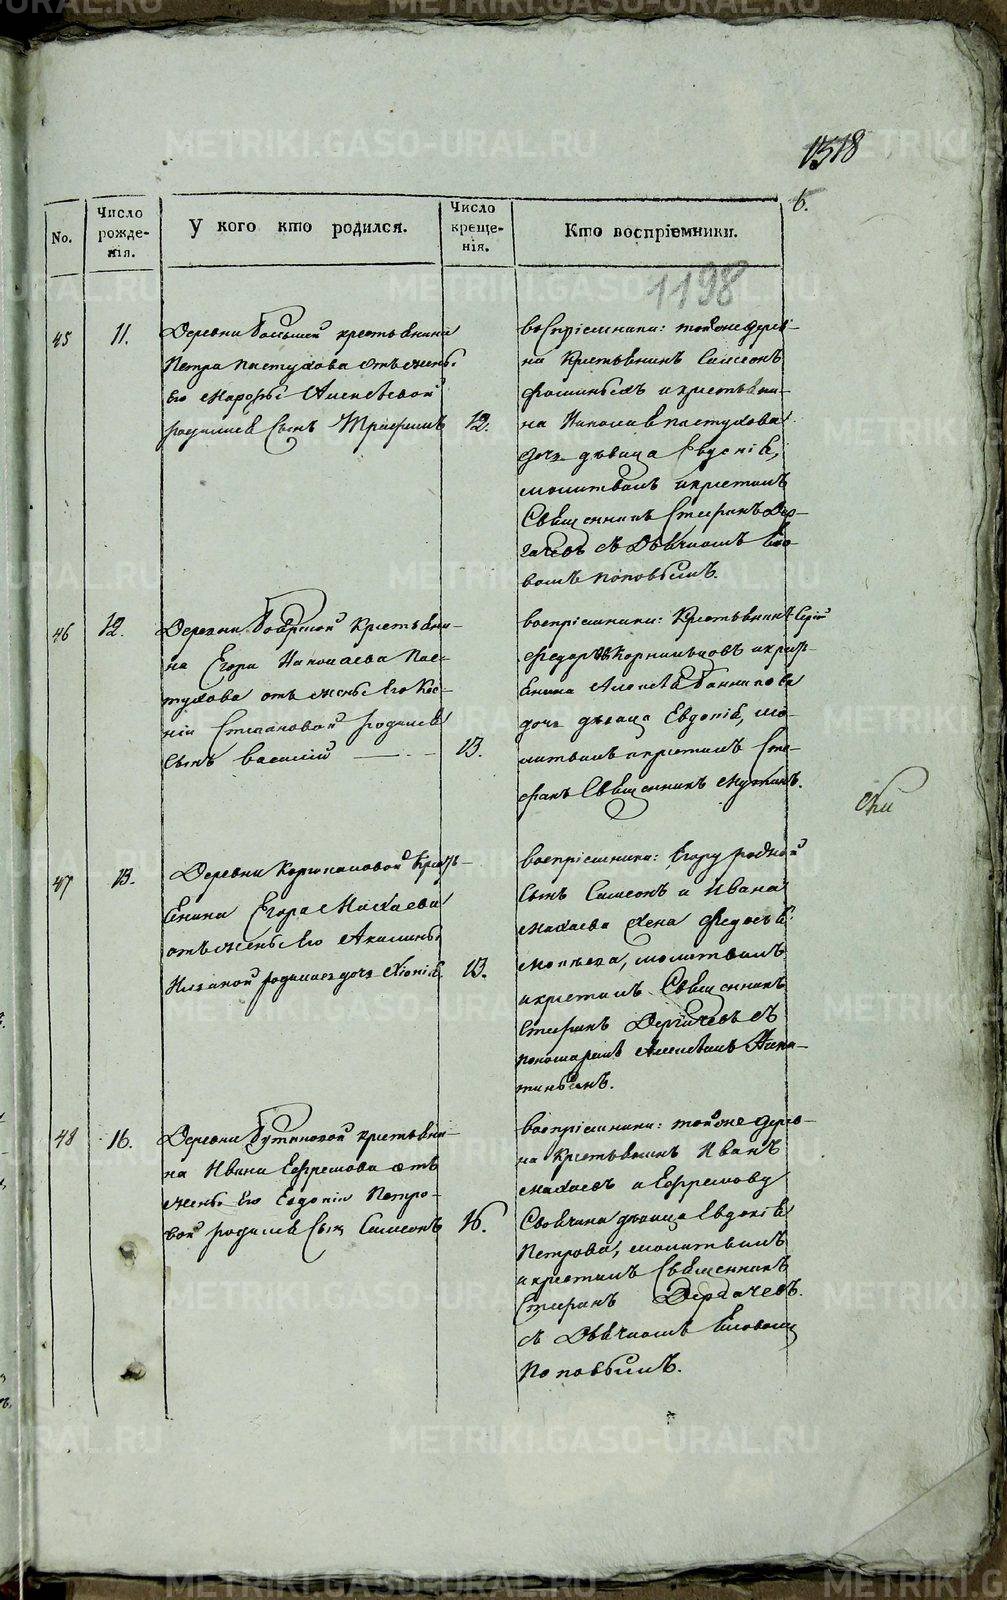 1318
6.
No.
Число рожде-нія.
У кого кто родился.
Число креще-нія.
Кто воспріемники.
1198
45
11.
Деревни Большой крестьянина
Петра Пастухова отъ жены
Его Марѳы Алексѣевой
родился Сынъ Трофимъ
12.
воспріемники: тойже дерев-
ни Крестьянинъ Симеонъ
Фоминыхъ и крестьяни-
на Николая Пастухова
дочь дѣвица Евдокія,
молитвилъ и крестилъ
Священникъ Стефанъ Дер-
гачевъ съ Дьячкомъ
Поповымъ.
46
12.
Деревни Большой Крестьяни-
на Егора Николаева Пас-
тухова отъ жены Его Ксе-
ніи Степановой родился
Сынъ Василій
13.
воспріемники: Крестьянинъ
Федоръ Корнильцовъ и крест-
ьянина Алексѣя Банникова
дочь дѣвица Евдокія, мо-
литвилъ и крестилъ Сте-
фанъ Священникъ
47
13.
Деревни Коргополовой Крест-
ьянина Егора Михаева
отъ жены Его Акилины
родилась дочь Хіонія
13.
воспріемники: Егору родной
Сынъ Симеонъ и Ивана
Михаева жена Федосья
молитвилъ
и крестилъ Священникъ
Стефанъ Дергачевъ съ
пономаремъ Алексѣемъ Ники-
тинымъ.
48
16.
Деревни Бутыновой крестьяни-
на Ивана Ефремова отъ
жены Его Евдокіи Петро-
вой родился Сынъ Симеонъ
16.
воспріемники: тойже дерев-
ни Крестьянинъ Иванъ
Михаевъ и Ефремову
Своячина дѣвица Евдокія
Петрова, молитвилъ
и крестилъ Священникъ
Стефанъ Дергачевъ
съ Дьячкомъ
Поповымъ.
METRIKI.GASO-URAL.RU